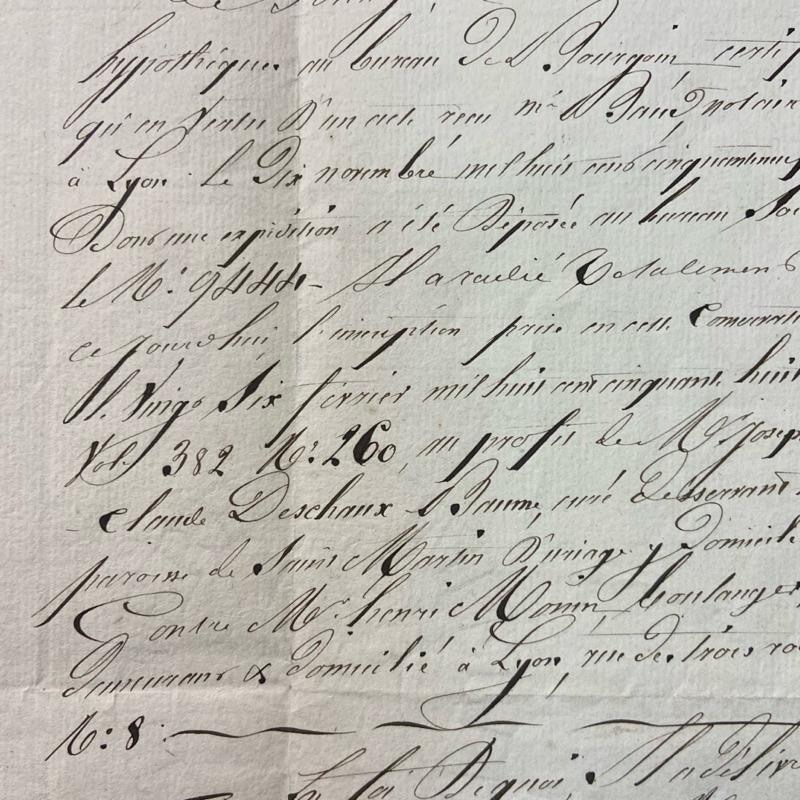 hypothèques au bureau De Bourgoin certif
qu'en Vertu D'un acte recu me Baud notair
à Lyon le Dix novembre mil huit cent cinquanteneuf
Dont une expédition a été Déposée au bureau Sou
le N.° 9444 - Il a radié Totalement
ce jourd'hui l'inscription prise en cette Conservati
le Vingt Six fevrier mil huit cent cinquante huit
Vol. 382 N.° 260, au profit de Mr Josep
Claude Deschaux Baume, curé Desservant
paroisse de Saint Martin D'uriage y Domicilié
Contre Mr henri Monin, boulanger,
Demeurant & Domicilié à Lyon, rue De trois
N.° 8.
foi De quoi, Il a délivré